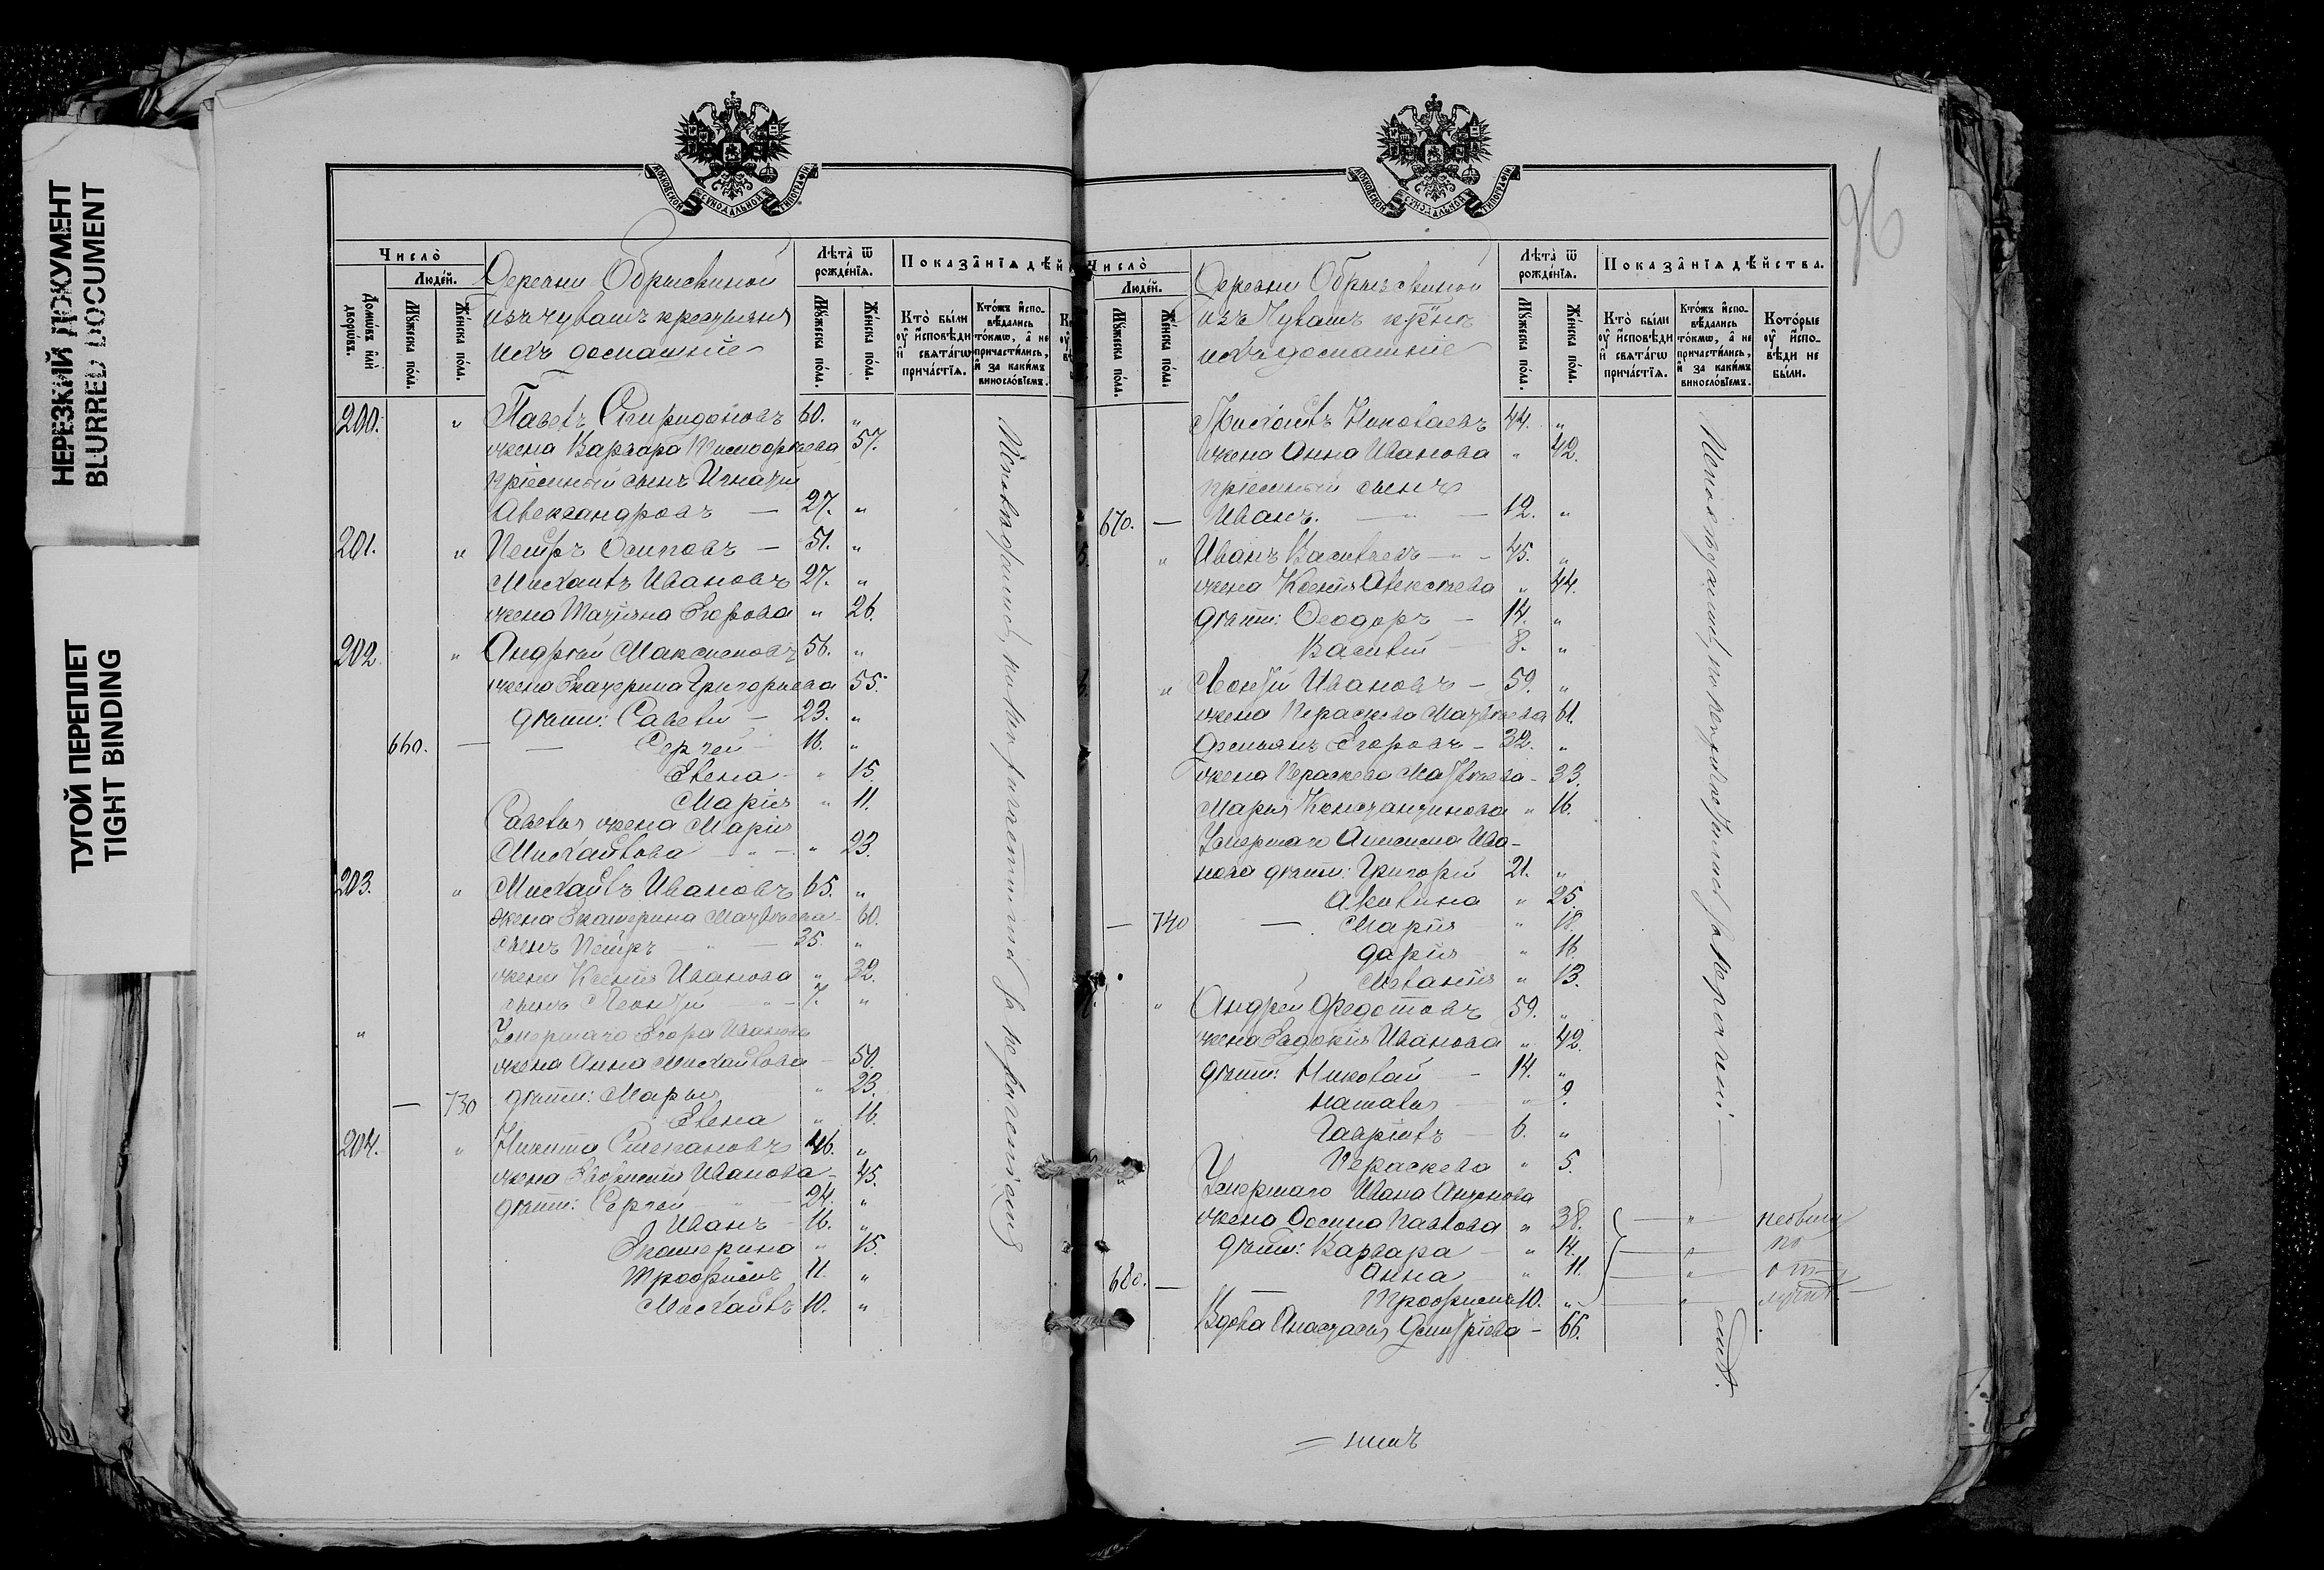 НЕРЕЗКИЙ ДОКУМЕНТ
BLURRED DOCUMENT
ТУГОЙ ПЕРЕПЛЕТ
TIGHT BINDING
МОСКОВСКОЙ СѴНОДАЛЬНОЙ ТИПОГРАФІИ
Число̀
Люде́й.
Домѡ́въ и҆лѝ дворѡ́въ.
Мꙋ́жеска по́ла.
Же́нска по́ла.
Деревни
изъ чувашъ крестьяне
ихъ домашніе
Лѣ́та ѿ рожде́нїѧ.
Мꙋ́жеска по́ла.
Же́нска по́ла.
Показа̑нїѧ дѣ́й
Кто̀ бы́ли оу҆ и҆сповѣ́ди и҆ свѧта́гѡ прича́стїѧ.
Кто́жъ и҆спо-вѣ́дались то́кмѡ, а҆ не причасти́лись, и҆ за каки́мъ винослові́емъ.
200. " Павелъ Спиридоновъ 60. "
жена Варвара 57.
пріемный сынъ Игнатій
Александровъ — 27. "
201. " Петръ Осиповъ — 51. "
Михаилъ Ивановъ 27. "
жена Татіана Егорова " 26.
202. " Андрей Максимовъ 56. "
жена Екатерина Григорьева 55.
дѣти: Савелій — 23. "
660. — — Сергей 16. "
Елена — " 15.
Марія " 11.
Савелья жена Марія
Михайлова — " — " 23.
203. " Михаилъ Ивановъ 65. "
жена Екатерина Матвѣева — 60.
сынъ Петръ — " — 35. "
жена Ксенія Иванова " 32.
сынъ Леонтій " — 7. "
" Умершаго Егора Иванова
жена Анна Михайлова — 50.
— 730 дѣти: Марья " 23.
Елена " 16.
204. " Никита Степановъ 46. "
жена Иванова — 45.
дѣти: Сергей — 24. "
Иванъ — 16. "
Екатерина " 15.
Трофимъ 11. "
Михаилъ 10. "
96
МОСКОВСКОЙ СѴНОДАЛЬНОЙ ТИПОГРАФІИ
Число̀
Люде́й.
Мꙋ́жеска по́ла.
Же́нска по́ла.
Деревни
изъ Чувашъ
ихъ домашніе
Лѣ́та ѿ рожде́нїѧ.
Мꙋ́жеска по́ла.
Же́нска по́ла.
Показа̑нїѧ дѣ́йства.
Кто̀ бы́ли оу҆ и҆сповѣ́ди и҆ свѧта́гѡ прича́стїѧ.
Кто́жъ и҆спо-вѣ́дались то́кмѡ, а҆ не причасти́лись, и҆ за каки́мъ винослові́емъ.
Кото́рые оу҆ и҆спо-вѣ́ди не бы́ли.
Михаилъ Николаевъ 44. "
жена Анна Иванова " 42.
пріемный сынъ
670. — Иванъ. — " — 12. "
5. " Иванъ Васильевъ — " — 45. "
жена Ксенія Алексѣева " 44.
дѣти: Ѳеодоръ — 14. "
Василій — 8. "
" Леонтій Ивановъ — 59. "
жена Параскева Матвѣева 61.
Демьянъ Егоровъ — 32. "
жена Параскева Матвѣева — 33.
Марья Константинова " 16.
Умершаго Анисима Ива-
нова дѣти: Григорій 21. "
Акилина " 25.
— 740 — Марія " 18.
Дарія " 16.
Меланія " 13.
" Андрей Федотовъ 59. "
жена Евдокія Иванова " 42.
дѣти: Николай — 14. "
Наталья — " 9.
Гавріилъ — 6. "
Параскева " 5.
Умершаго Ивана Антонова
жена Павлова " 38. — " — небыли
дѣти: Варвара — " 14. — " — по
Анна " 11. — " — от-
680. — — Трофимъ 10. " — " —
Вдова Анастасія Димитріева — 66.